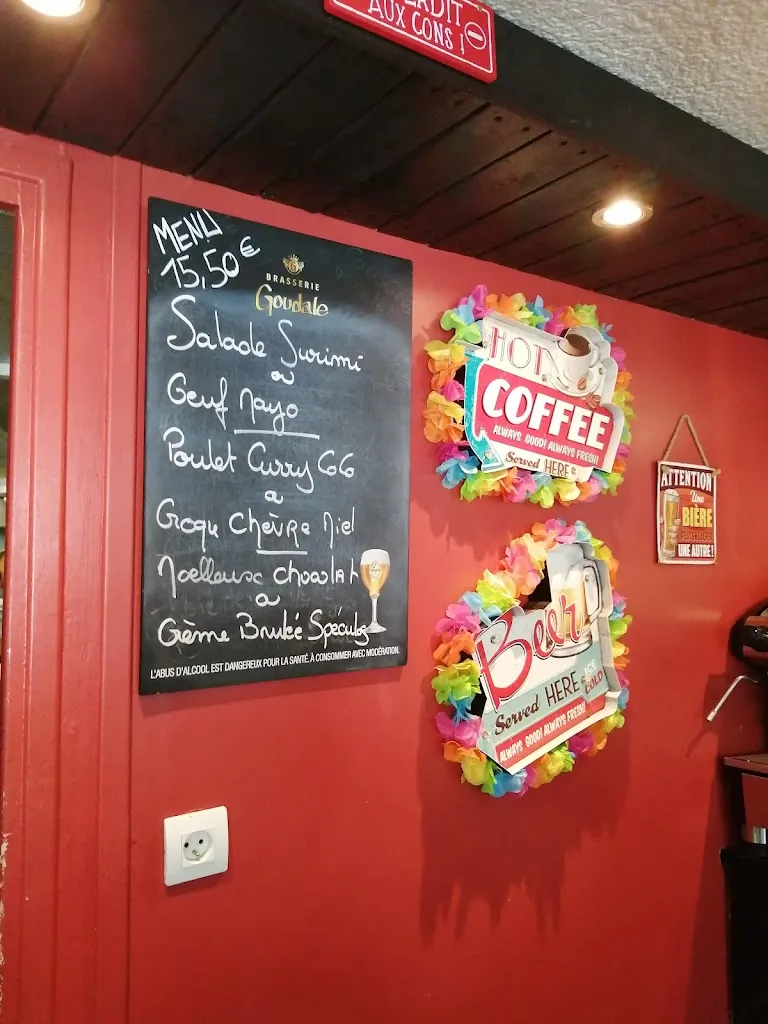 INTERDIT
AUX CONS !
MENU
15,50 €
BRASSERIE
Goudale
Salade Surimi
ou
Oeuf Mayo
Poulet Curry GG
ou
Croque Chèvre Miel
Moelleux Chocolat
ou
Crème Brulée Spéculos
L'ABUS D'ALCOOL EST DANGEREUX POUR LA SANTÉ. À CONSOMMER AVEC MODÉRATION.
HOT
COFFEE
ALWAYS GOOD! ALWAYS FRESH!
Served HERE
ATTENTION
Une
BIÈRE
UNE AUTRE !
Beer
Served HERE
ICE
COLD
ALWAYS GOOD! ALWAYS FRESH!